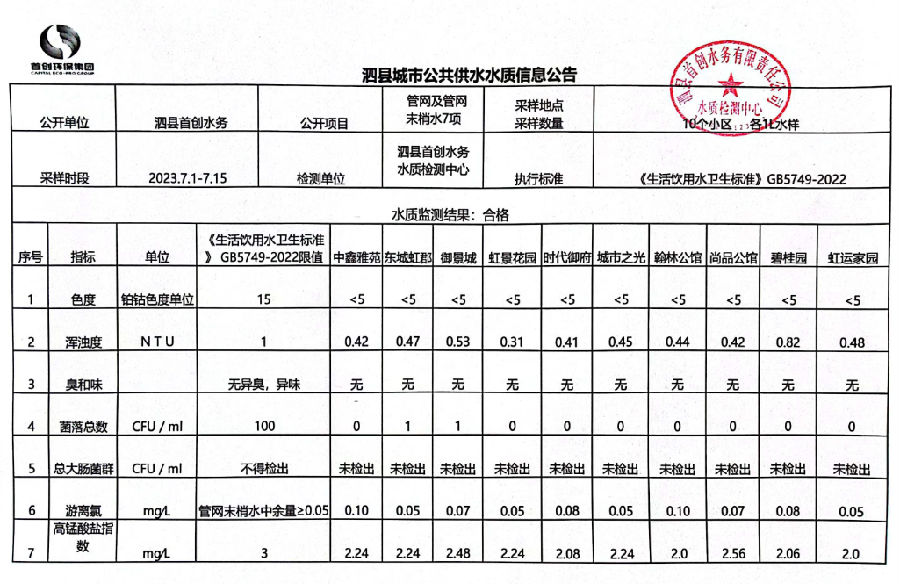 首创环保集团
CAPITAL ECO-PRO GROUP
泗县城市公共供水水质信息公告
泗县首创水务有限责任公司
水质检测中心
公开单位 泗县首创水务 公开项目 管网及管网末梢水7项 采样地点采样数量 10个小区 各1L水样
采样时段 2023.7.1-7.15 检测单位 泗县首创水务水质检测中心 执行标准 《生活饮用水卫生标准》GB5749-2022
水质监测结果：合格
序号 指标 单位 《生活饮用水卫生标准》GB5749-2022限值 中鑫雅苑 东城虹郡 御景城 虹景花园 时代御府 城市之光 翰林公馆 尚品公馆 碧桂园 虹运家园
1 色度 铂钴色度单位 15 <5 <5 <5 <5 <5 <5 <5 <5 <5 <5
2 浑浊度 NTU 1 0.42 0.47 0.53 0.31 0.41 0.45 0.44 0.42 0.82 0.48
3 臭和味 无异臭，异味 无 无 无 无 无 无 无 无 无 无
4 菌落总数 CFU / ml 100 0 1 1 0 0 0 0 0 0 0
5 总大肠菌群 CFU / ml 不得检出 未检出 未检出 未检出 未检出 未检出 未检出 未检出 未检出 未检出 未检出
6 游离氯 mg/L 管网末梢水中余量≥0.05 0.10 0.05 0.07 0.05 0.08 0.05 0.10 0.07 0.08 0.05
7 高锰酸盐指数 mg/L 3 2.24 2.24 2.48 2.24 2.08 2.24 2.0 2.56 2.06 2.0